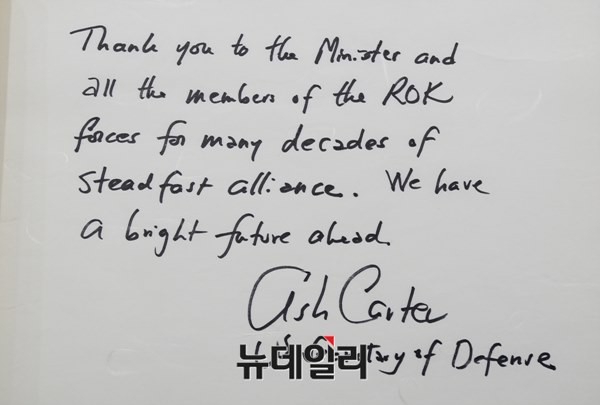 Thank you to the Minister and
all the members of the ROK
forces for many decades of
steadfast alliance. We have
a bright future ahead.
Ash Carter
of Defense
뉴데일리